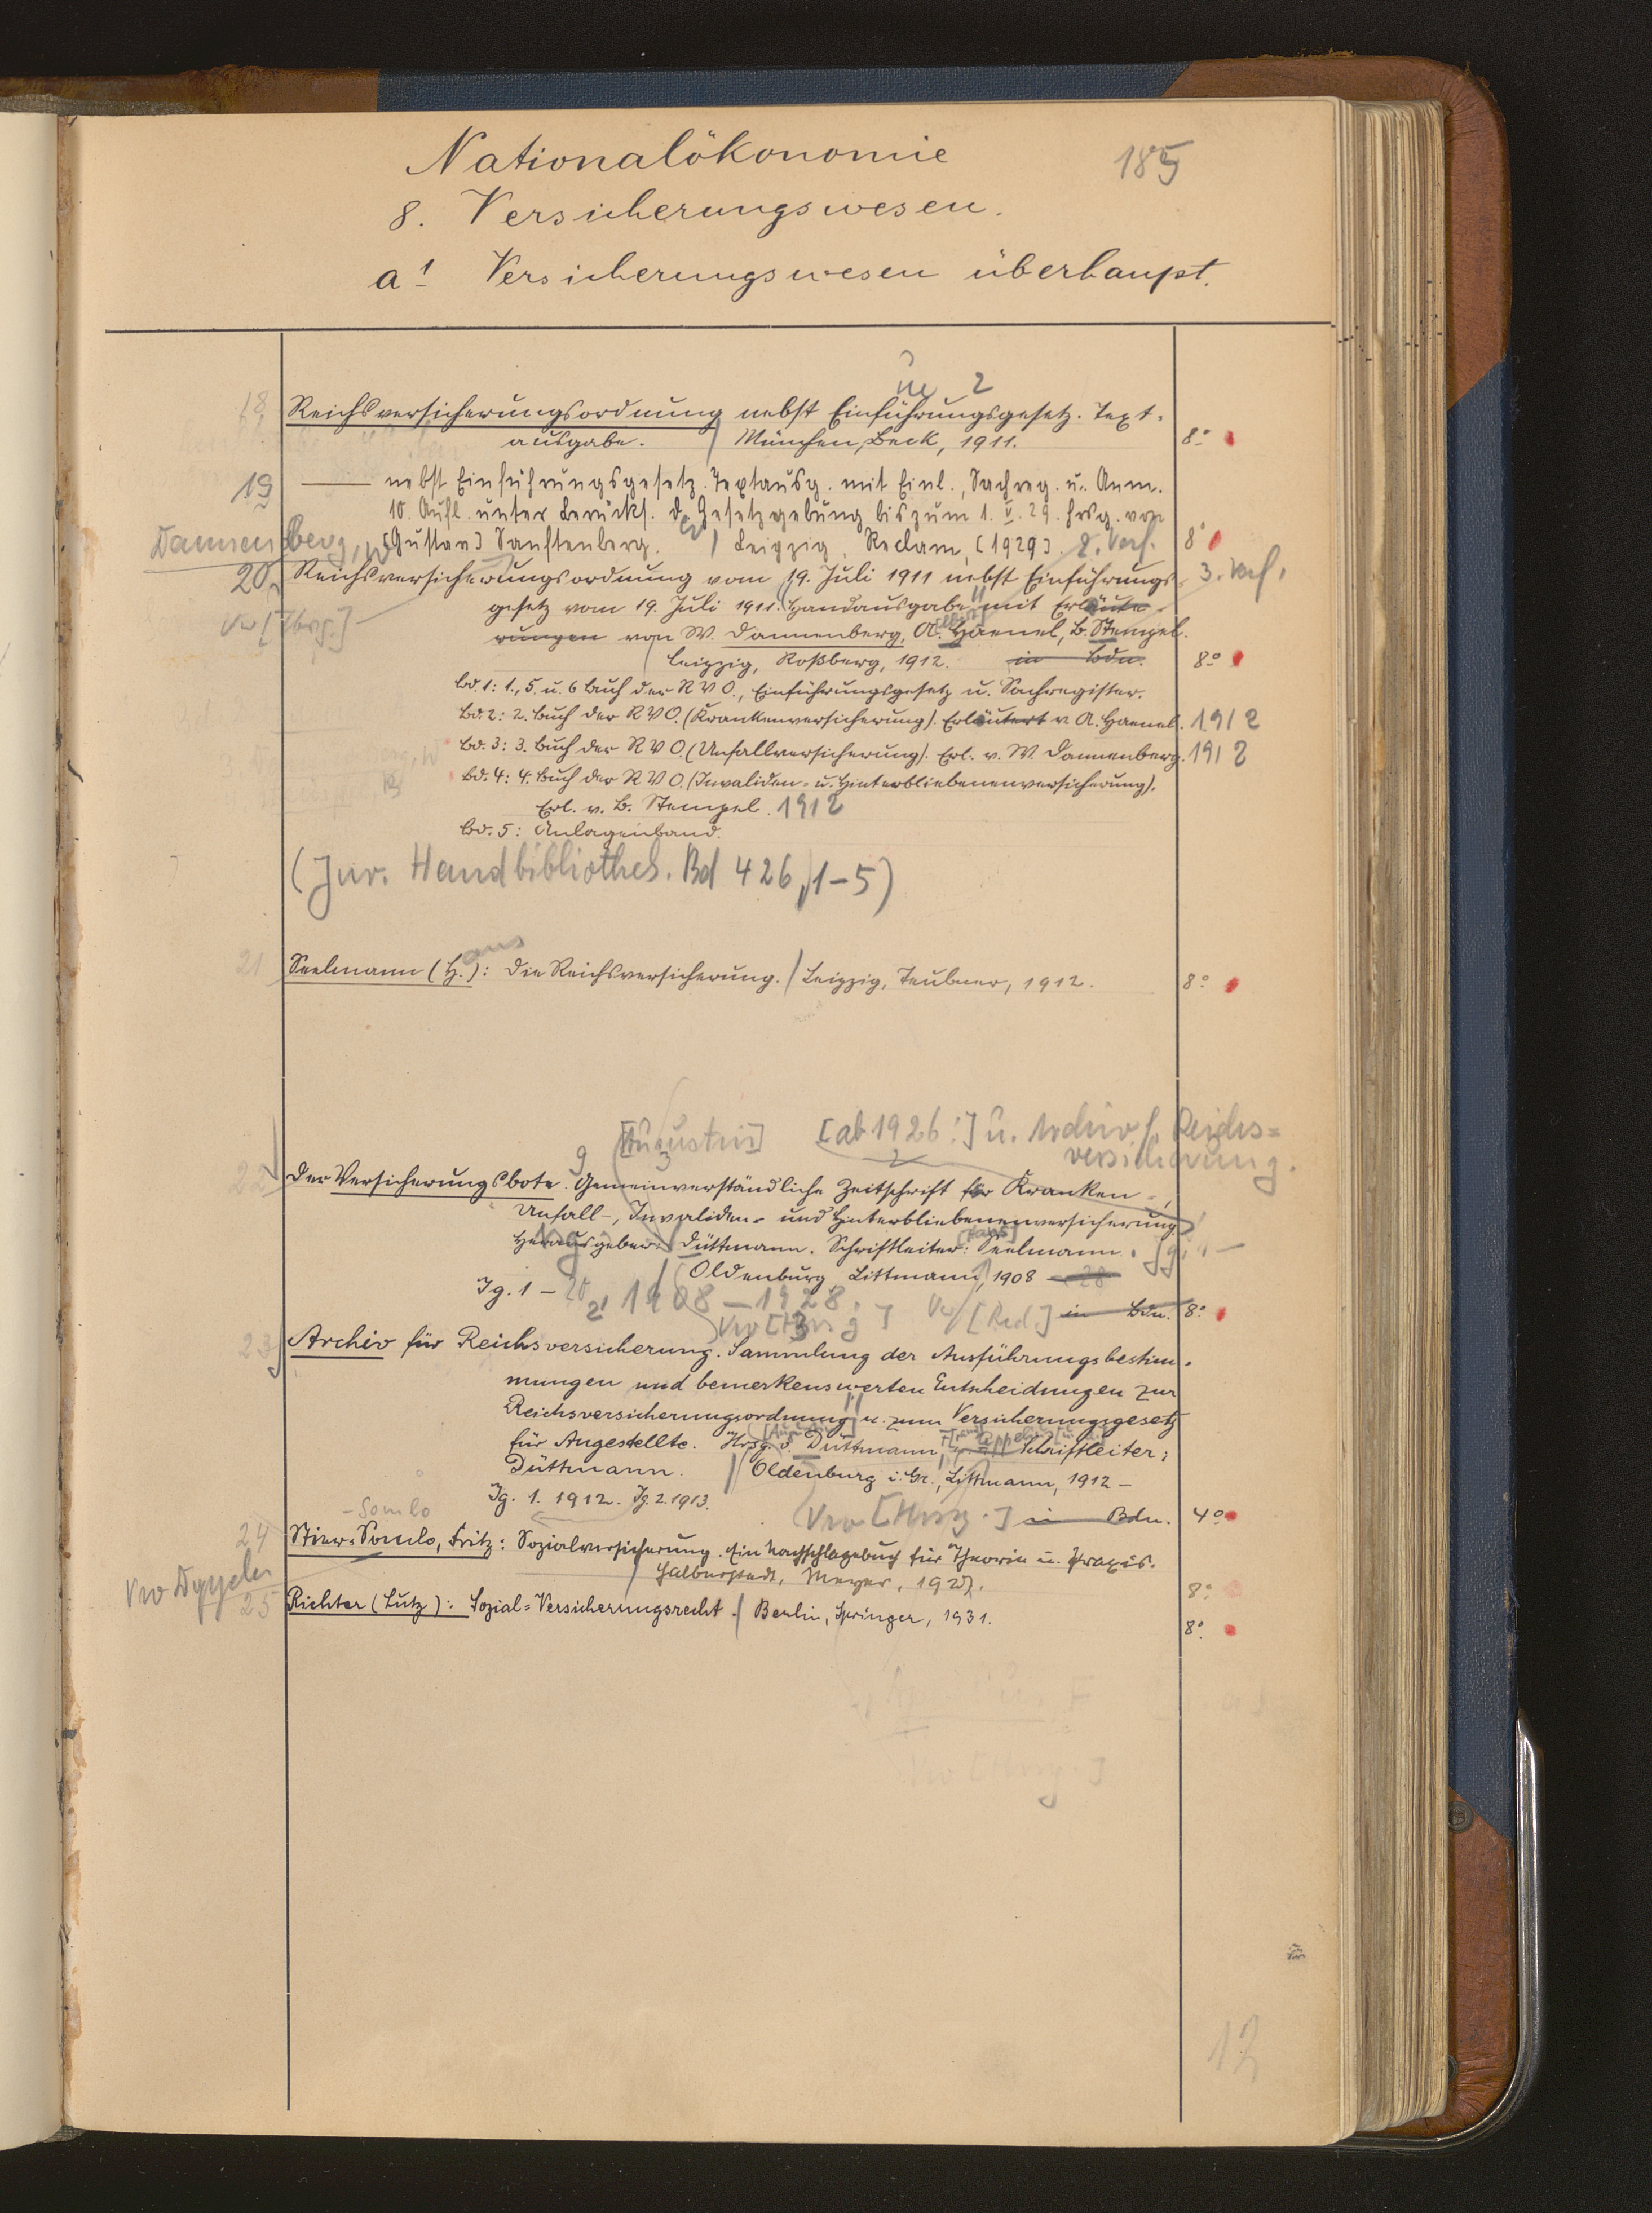 Nationalökonomie
185
8. Versicherungswesen.
a¹ Versicherungswesen überhaupt.
2
18 Reichsversicherungsordnung nebst Einführungsgesetz. Text-
ausgabe. / München, Beck, 1911. 8°
19 — nebst Einführungsgesetz. Textausg. mit Einl., Sachreg. u. Anm.
10. Aufl. unter Berücks. d. Gesetzgebung bis zum 1. V. 29. hrsg. von
[Gustav] Sanftenberg. / Leipzig, Reclam, [1929]. 2. Verf. 8°
Dannenberg, W
20. Reichsversicherungsordnung vom 19. Juli 1911 nebst Einführungs- 3. Verf.
gesetz vom 19. Juli 1911. Handausgabe mit Erläute-
rungen von W. Dannenberg, A. Haenel, B. Stempel.
Leipzig, Roßberg, 1912. in Bdn. 8°
Bd. 1: 1., 5. u. 6 Buch der RVO., Einführungsgesetz u. Sachregister.
Bd. 2: 2. Buch der RVO. (Krankenversicherung). Erläutert v. A. Haenel. 1912
Bd. 3: 3. Buch der RVO. (Unfallversicherung). Erl. v. W. Dannenberg. 1912
Bd. 4: 4. Buch der RVO. (Invaliden- u. Hinterbliebenenversicherung).
Erl. v. B. Stempel. 1912
Bd. 5: Anlagenband.
(Jur. Handbibliothek. Bd 426, 1-5)
21 Seelmann (Hans): Die Reichsversicherung. / Leipzig, Teubner, 1912. 8°
[Augustin] [ab 1926:] u. Archiv f. Reichs-
versicherung.
22 Der Versicherungsbote. Gemeinverständliche Zeitschrift für Kranken-,
Unfall-, Invaliden- und Hinterbliebenenversicherung.
Herausgeber: Düttmann. Schriftleiter: [Hans] Seelmann.
Oldenburg, Littmann, 1908 - 28
Jg. 1 - 1908 - 1928. Vw [Red.] in Bdn. 8°
Vw [Hrsg]
23 Archiv für Reichsversicherung. Sammlung der Ausführungsbestim-
mungen und bemerkenswerten Entscheidungen zur
Reichsversicherungsordnung u. zum Versicherungsgesetz
für Angestellte. Hrsg. v. Düttmann Schriftleiter:
Düttmann. / Oldenburg i. Gr., Littmann, 1912 -
Jg. 1. 1912. Jg. 2. 1913.
Vw [Hrsg.] in Bdn. 4°
- Somlo
24 Stier-Somlo, Fritz: Sozialversicherung. Ein Nachschlagebuch für Theorie u. Praxis.
Halberstadt, Meyer, 1927. 8°
25 Richter (Lutz): Sozial-Versicherungsrecht. / Berlin, Springer, 1931. 8°
12